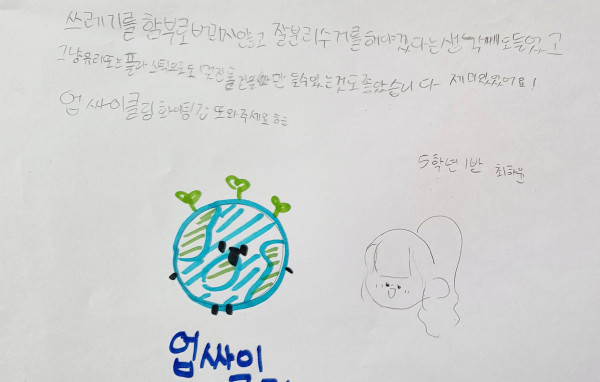 쓰레기를 함부로 버리지않고 잘분리수거를해야겠다는생각깨도들었고
그냥유리또는플라스틱으로도 멋진 만들수있는것도좋았습니다 재미있었어요!
업싸이클링 화이팅 또와주세요
5학년1반 최하윤
업싸이